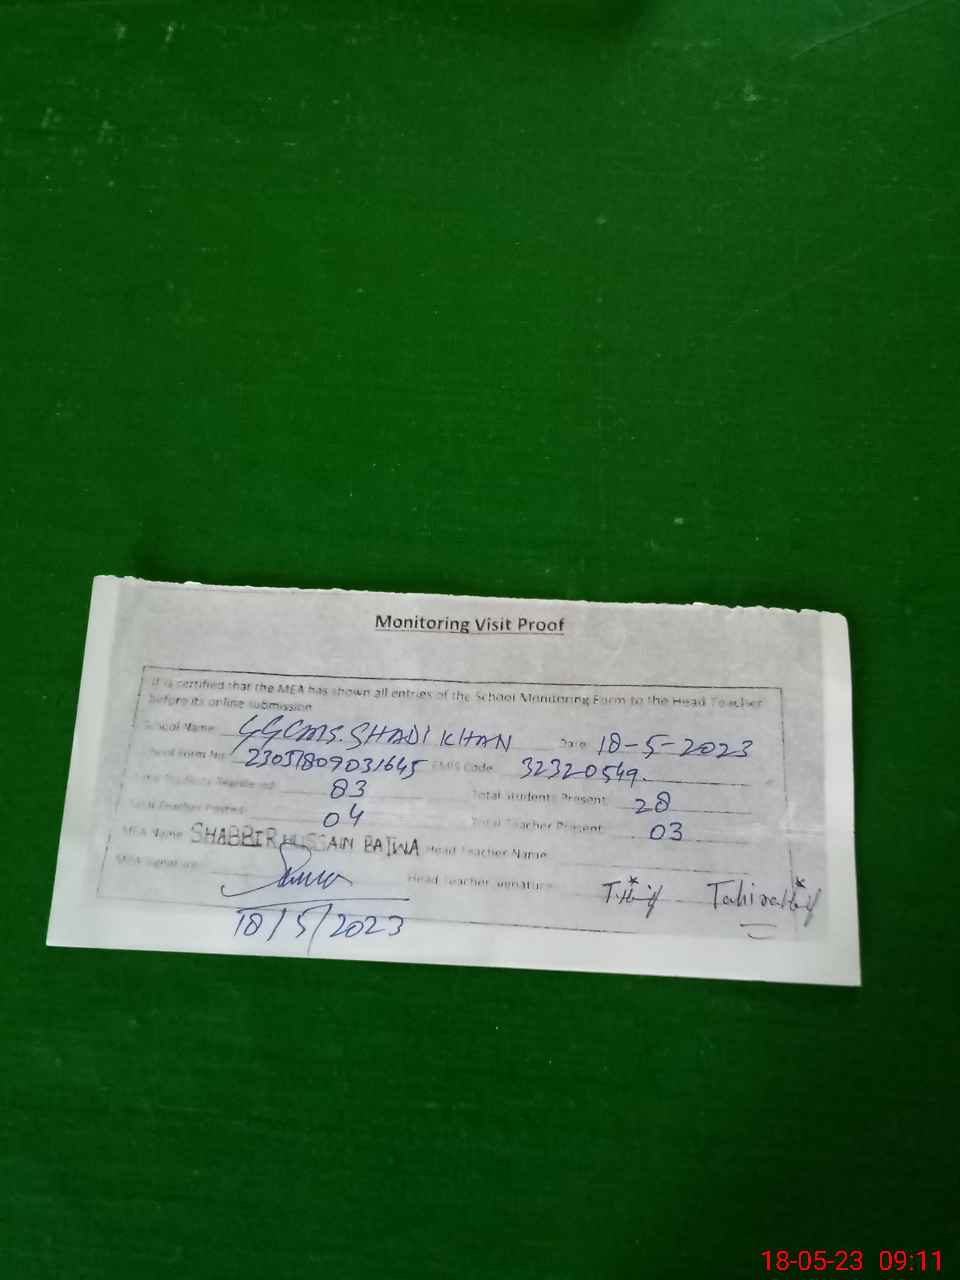 Monitoring Visit Proof
It is certified that the MEA has shown all entries of the School Monitoring Form to the Head Teacher
before its online submission
School Name GGCMS. SHADI KHAN Date 18-5-2023
School Form No 23051809031645 EMIS Code 32320549.
Total Students Registered 83 Total Students Present 28
Total Teacher Posted 04 Total Teacher Present 03
MEA Name SHABBIR HUSSAIN BAJWA Head Teacher Name
MEA Signature Head Teacher Signature
18/5/2023
18-05-23 09:11